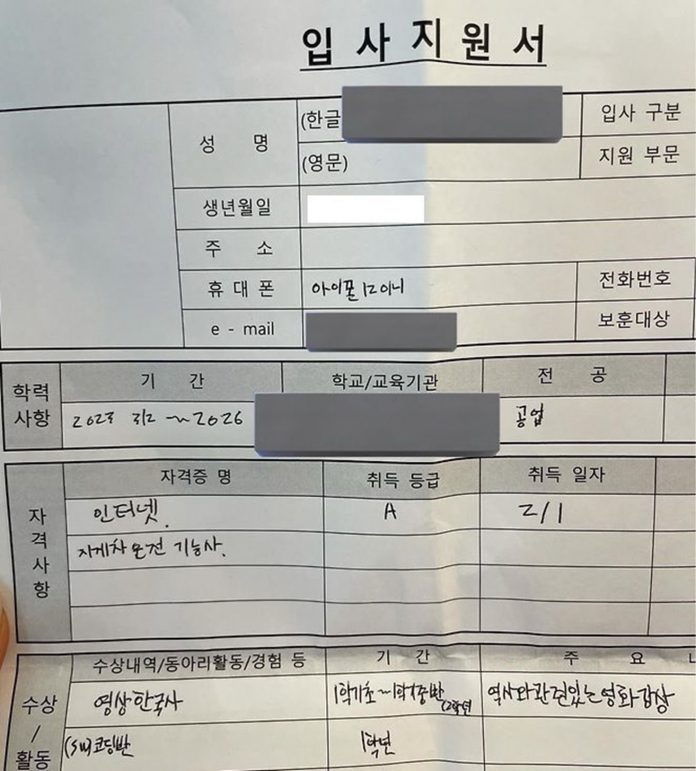 입사지원서
성 명 (한글 입사 구분
(영문) 지원 부문
생년월일
주 소
휴 대 폰 아이폰 12 미니 전화번호
e - mail 보훈대상
학력 사항 기 간 학교/교육기관 전 공
2023 3/2 ~ 2026 공업
자격사항 자격증 명 취득 등급 취득 일자
인터넷. A 2/1
지게차운전 기능사.
수상 / 활동 수상내역/동아리활동/경험 등 기 간 주 요
영상한국사 1학기초~1학기중반(2학년 역사와관련있는영화감상
(SW)코딩반 1학년